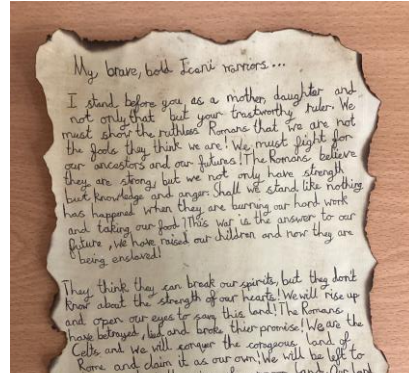 My, brave, bold Iceni warriors...
I stand before you as a mother, daughter and
not only that but your trustworthy ruler. We
must show the ruthless Romans that we are not
the fools they think we are! We must fight for
our ancestors and our futures! The Romans believe
they are strong, but we not only have strength
but knowledge and anger. Shall we stand like nothing
has happened when they are burning our hard work
and taking our food? This war is the answer to our
future, we have raised our children and now they are
being enslaved!
They think they can break our spirits, but they don't
know about the strength of our hearts! We will rise up
and open our eyes to save this land! The Romans
have betrayed, lied and broke thier promise! We are the
Celts and we will conquer the land of
Rome and claim it as our own! We will be left to
land. Our land